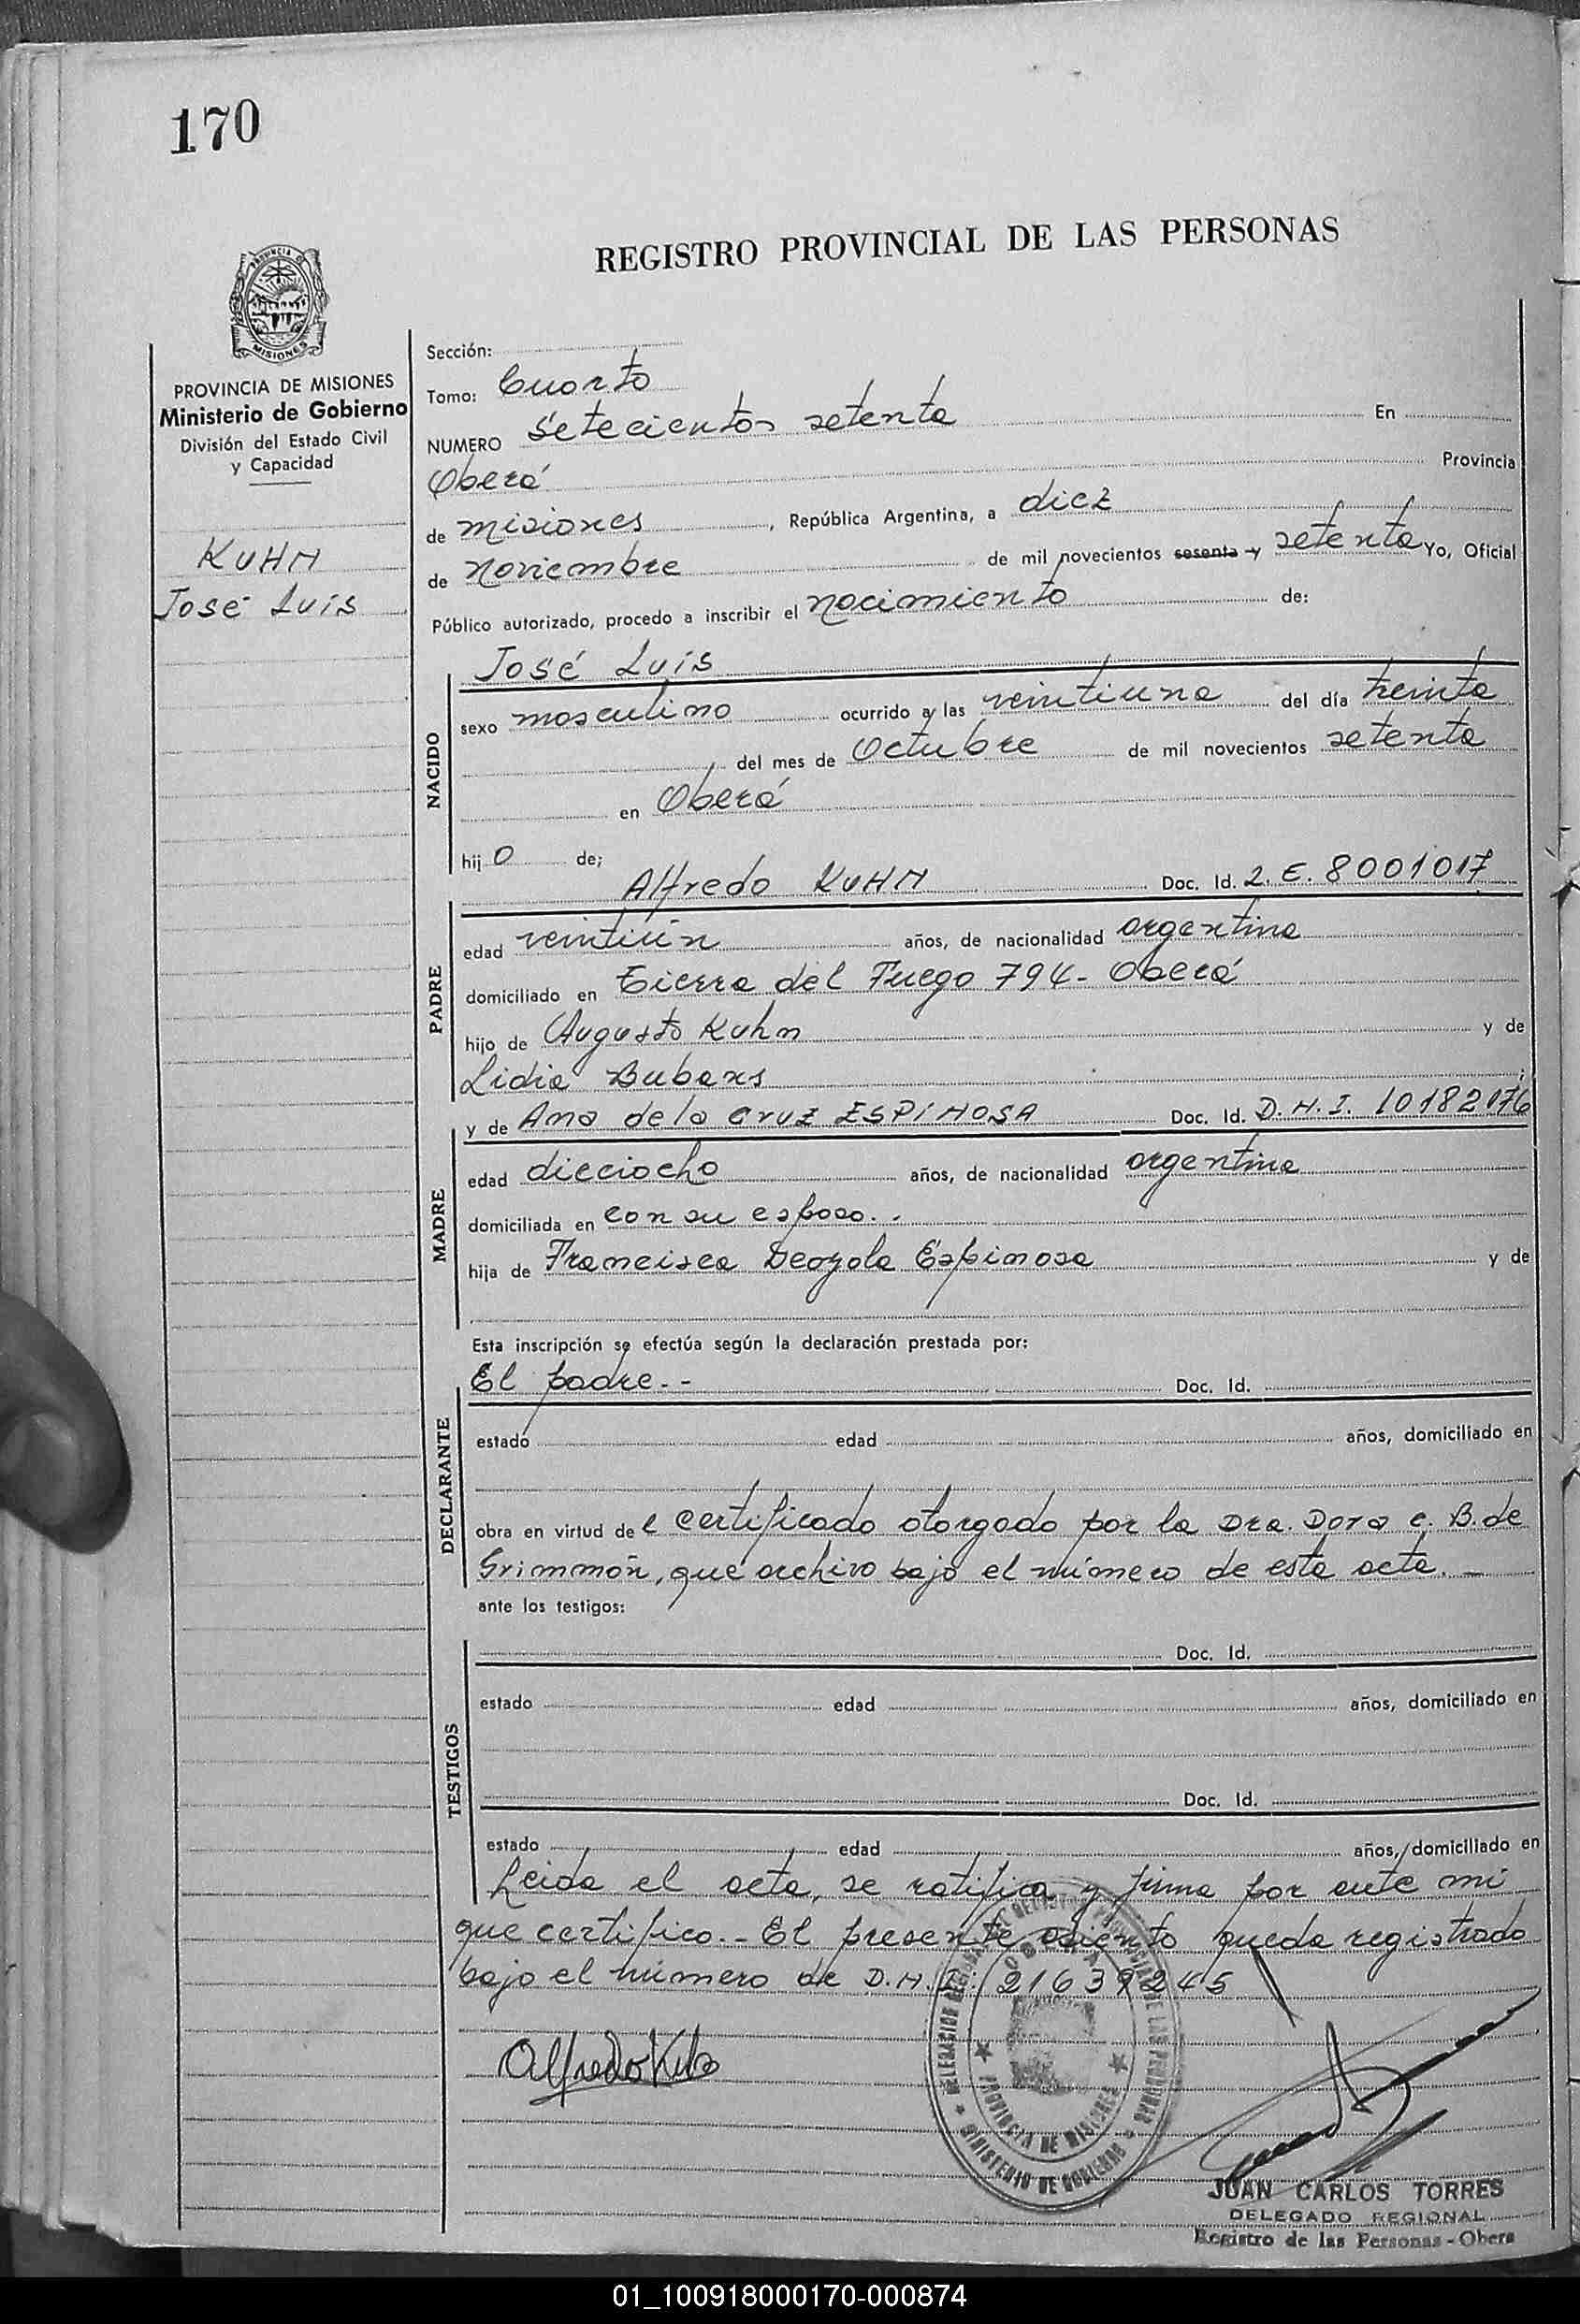 170
REGISTRO PROVINCIAL DE LAS PERSONAS
PROVINCIA DE
MISIONES
PROVINCIA DE MISIONES
Ministerio de Gobierno
División del Estado Civil
y Capacidad
KUHN
José Luis
Sección:
Tomo: Cuarto
NUMERO Setecientos setenta En
Oberá Provincia
de misiones, República Argentina, a diez
de noviembre de mil novecientos sesenta y setenta Yo, Oficial
Público autorizado, procedo a inscribir el nacimiento de:
José Luis
NACIDO
sexo masculino ocurrido a las veintiuna del día treinta
del mes de Octubre de mil novecientos setenta
en Oberá
hijo de;
Alfredo KUHN Doc. Id. L. E. 8001017
PADRE
edad veintiún años, de nacionalidad argentina
domiciliado en Tierra del Fuego 794- Oberá
hijo de Augusto Kuhn y de
Lidia
y de Ana de la Cruz ESPINOSA Doc. Id. D. N. I. 10182176
MADRE
edad dieciocho años, de nacionalidad argentina
domiciliada en con su esposo. .
hija de Francisca Espinosa y de
Esta inscripción se efectúa según la declaración prestada por:
El padre.- - Doc. Id.
DECLARANTE
estado edad años, domiciliado en
obra en virtud del certificado otorgado por la Dra. Dora C. B. de
Grimmon, que archivo bajo el número de esta acta. -
ante los testigos:
TESTIGOS
Doc. Id.
estado edad años, domiciliado en
Doc. Id.
estado edad años, domiciliado en
Leida el acta, se ratifica y firma por ante mi
que certifico.- El presente asiento queda registrado
bajo el número de D.N.I: 21639245
Alfredo
DELEGACION REGIONAL DEL REGISTRO PROVINCIAL DE LAS PERSONAS
OBERA
PROVINCIA DE MISIONES
MINISTERIO DE GOBIERNO
JUAN CARLOS TORRES
DELEGADO REGIONAL
Registro de las Personas - Obera
01_100918000170-000874